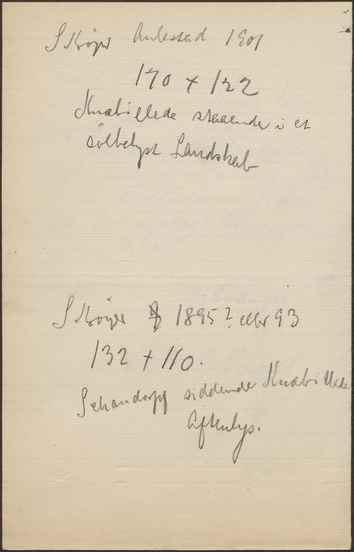 S Krøyer Aulestad 1901
170 + 122
Knæbillede staaende i et
solbelyst Landskab
S Krøyer 1895? eller 93
132 + 110.
Schandorff siddende Knæbillede
Aftenlys.